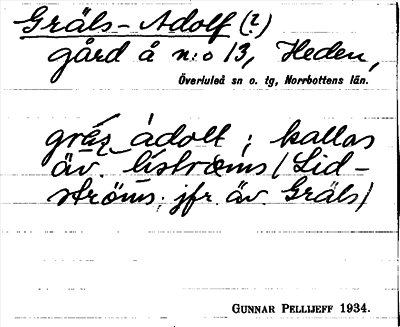 Gräls-Adolf (?)
gård å n:o 13, Heden,
Överluleå sn o. tg, Norrbottens län.
gräs adolt ; kallas
äv. listrœms (Lid-
ströms; jfr äv Gräls)
GUNNAR PELLIJEFF 1934.